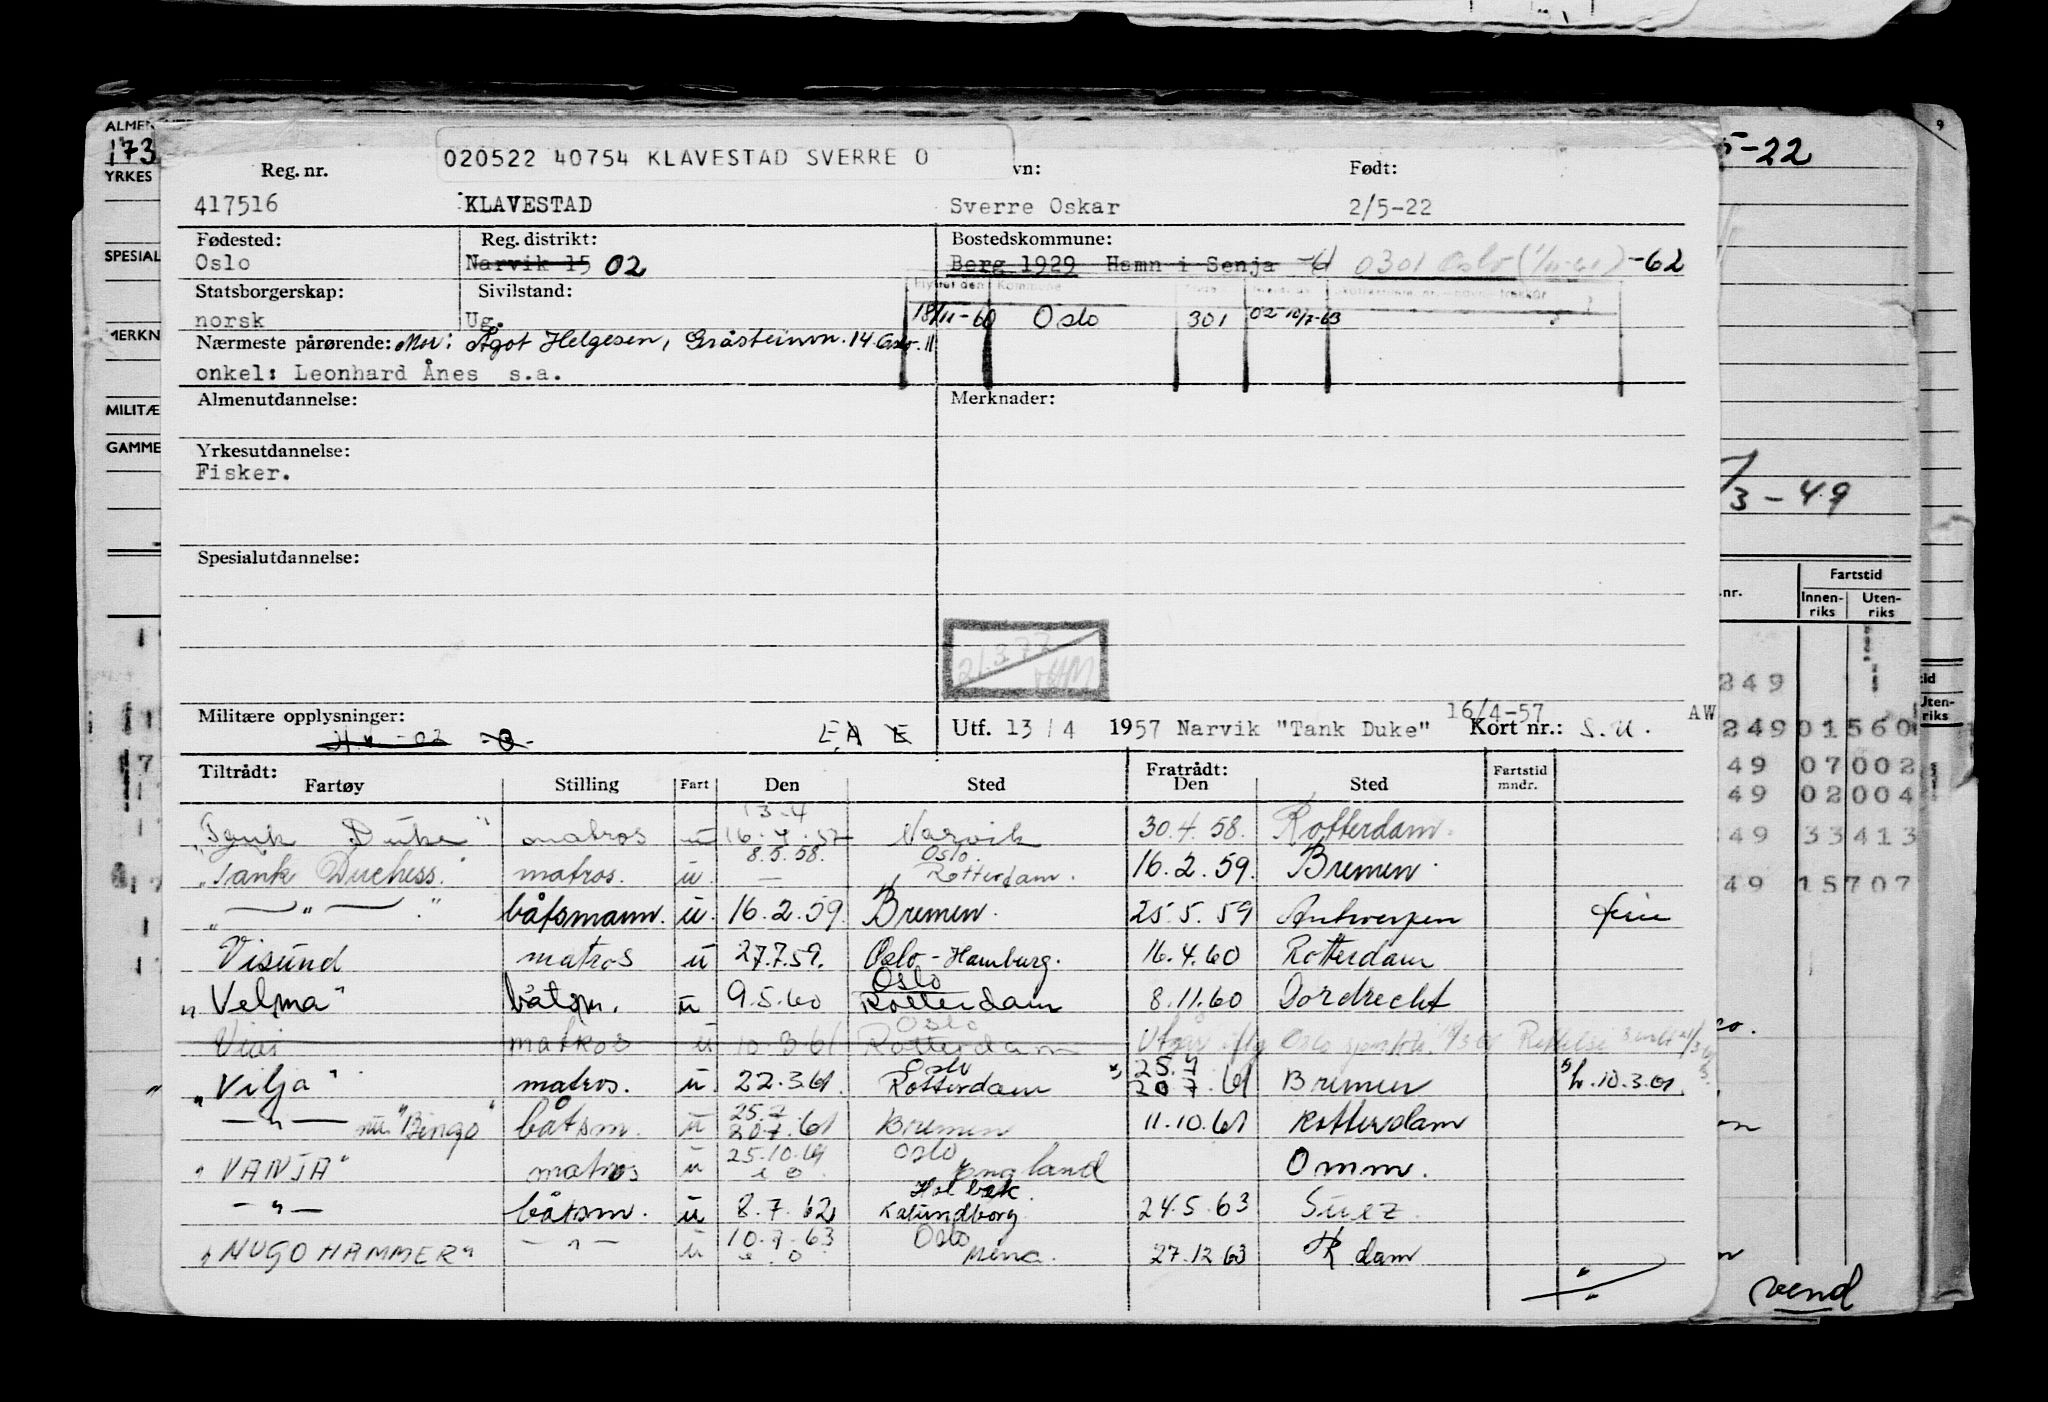 020522 40754 KLAVESTAD SVERRE O
Reg. nr. vn: Født:
417516 KLAVESTAD Sverre Oskar 2/5-22
Fødested: Reg. distrikt: Bostedskommune:
Oslo Narvik 15 02 Berg 1929 Hamn i Senja -61 0301 Oslo -62
Statsborgerskap: Sivilstand: Flyttet den Kommune
norsk Ug. 18/11-60 Oslo 301 02 10/7-63
Nærmeste pårørende: Mor: Ågot Helgesen, Gråsteinvn. 14 Oslo. 11
onkel: Leonhard Ånes s.a.
Almenutdannelse: Merknader:
Yrkesutdannelse:
Fisker.
Spesialutdannelse:
21.3.77
Militære opplysninger: Utf. 13/4 1957 Narvik "Tank Duke" 16/4-57 Kort nr.: S.U. AW
Tiltrådt: Fratrådt:
Fartøy Stilling Fart Den Sted Den Sted Fartstid mndr.
13.4
"Tank Duke" matros u 16.4.57 Narvik 30.4.58. Rotterdam.
8.5.58. Oslo
"Tank Duchess." matros. u. — Rotterdam. 16.2.59. Bremen.
— " — båtsmann. u. 16.2.59. Bremen. 25.5.59 Antwerpen ferie
Visund matros u 27.7.59. Oslo - Hamburg. 16.4.60 Rotterdam
Oslo
"Velma" båtsm. u 9.5.60 Rotterdam 8.11.60 Dordrecht
Oslo
matros u 10.3.61 Rotterdam Utgår Oslo
Oslo 25.7
"Vilja" matros. u. 22.3.61 Rotterdam 20 7.61 Bremen 10.3.61.
25.7.
— " — nu "Bingo" båtsm. u 20.7.61 Bremen 11.10.61 Rotterdam
25.10.61 Oslo
"VANJA" matros u England Omm.
Holbæk.
— " — båtsm. u 8.7.62 Kalundborg 24.5.63 Suez.
10.7.63 Oslo
"HUGO HAMMER" — " — u Mena. 27.12.63 R dam
./.
ALMEN
173
YRKES
SPESIAL
MERKN
MILITÆ
GAMME
5-22
/3-49
nr. Fartstid
Innenriks Utenriks
249
249 01 560
49 07 002
49 02 004
49 33 413
49 15 707
vend
9